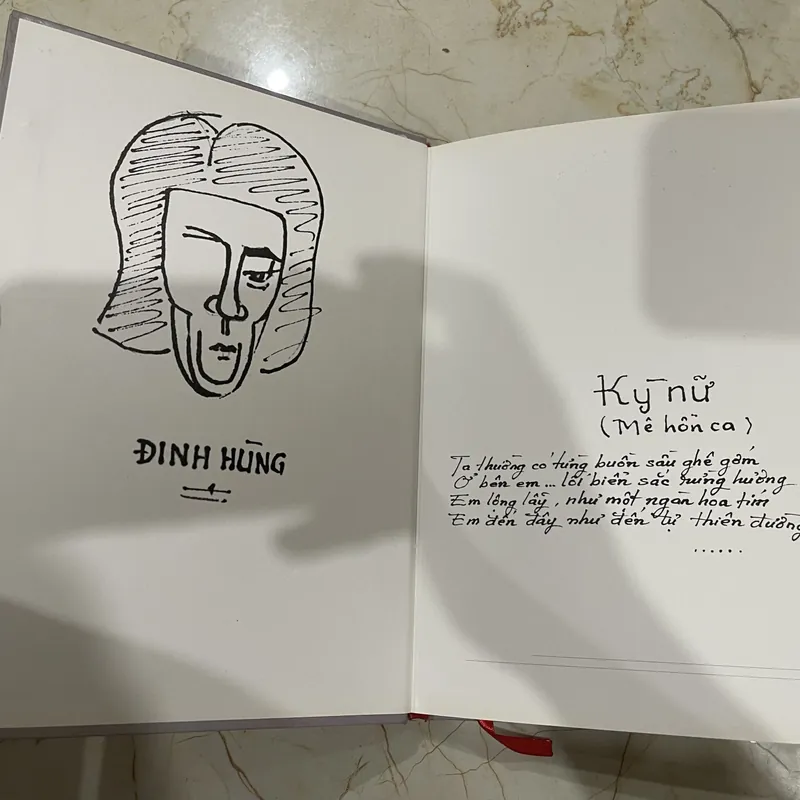 ĐINH HÙNG
Kỳ nữ
(Mê hồn ca)
Ta thường có từng buồn sầu ghê gớm
Ở bên em... lối biển sắc rừng hương
Em lộng lẫy, như một ngàn hoa tím
Em đến đây như đến tự thiên đường
......